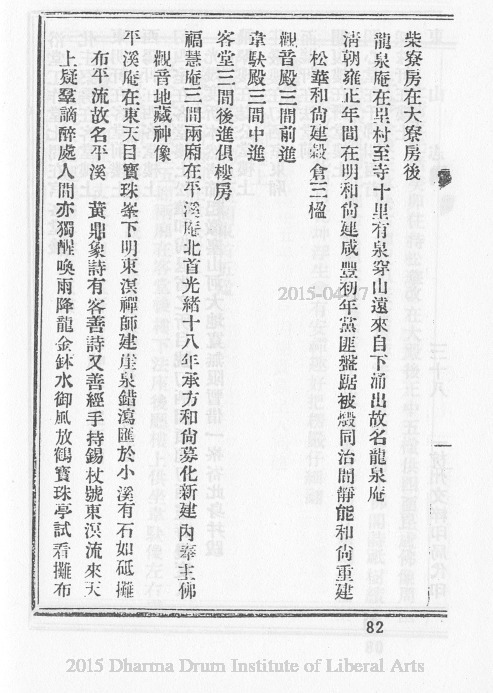 柴寮房在大寮房後
龍泉庵在呈村至寺十里有泉穿山遠來自下涌出故名龍泉庵
清朝雍正年間在明和尙建咸豐初年黨匪盤踞被燬同治間靜能和尙重建
松華和尙建穀倉三楹
觀音殿三間前進
韋馱殿三間中進
客堂三間後進俱樓房
福慧庵三間兩廂在平溪庵北首光緒十八年承方和尙募化新建內奉主佛
觀音地藏神像
平溪庵在東天目寶珠峯下明東溟禪師建崖泉錯瀉匯於小溪有石如砥攤
布平流故名平溪 黃鼎象詩有客善詩又善經手持錫杖號東溟流來天
上疑羣謫醉處人間亦獨醒喚雨降龍金鉢水御風放鶴寶珠亭試看攤布
2015-04-17
82
2015 Dharma Drum Institute of Liberal Arts